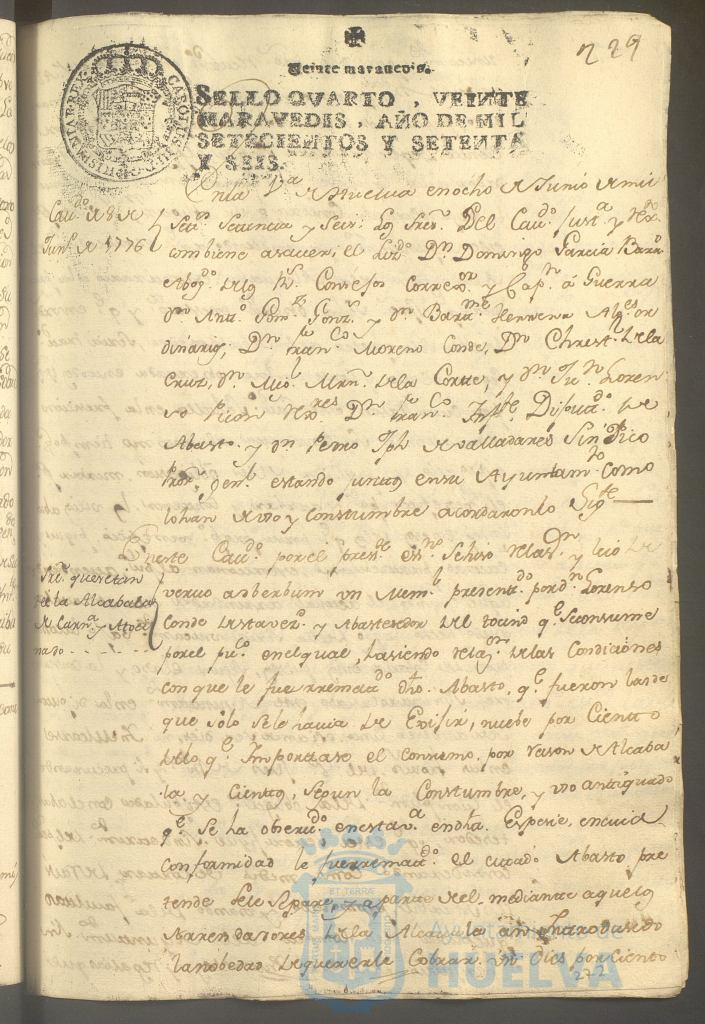 229
Veinte maravedis.
SELLO QVARTO, VEINTE
MARAVEDIS, AÑO DE MIL
SETECIENTOS Y SETENTA
Y SEIS.
Cavdo. de 8 de
Junio. de 1776
En la Va. de Huelva en ocho de Junio de mil
Setecs. Setenta y Seis: Los Sres. Del Cavdo. Justa. y Rexto.
combiene a saver; el Lizdo. Dn. Domingo Garcia
Abogdo. de los Rs. Consejos Correxor. y Capn. á Guerra
dn. Anto. Gonz. y dn. Barme. Herrera Alces. or
dinarios, Dn. Franco. Moreno Conde, Dn. Christl. de la
Cruz, dn. Migl. Mrn. de la Corte, y dn. Jn. Loren
so Picon Rexres. Dn. Franco. Infte. Diputdo. de
Abasto. y dn. Pedro Jph de valladares Sindico
Pror. Genl. estando juntos en su Ayuntamto. como
lo han de vso y constumbre acordaron lo Sigte.
Sre. que
de la Alcabala
de Carna. y
En este Cavdo. por el preste. essno. Se hiso relason. y leió de
vervo adberbum vn Meml. presentdo. por dn. Lorenso
Conde de esta vezd. y Abastesedor del tocino qe. Se consume
por el puco. en el qual, hasiendo relaon. de las Condiciones
con que le fue rrematdo. dho. Abasto, qe. fueron las de
que sólo se le havia de Exisir, nuebe por Ciento
de lo qe. Importase el consumo, por rason de Alcaba
la y Cientos, Segun la Constumbre, y vso antiguado
qe. Se ha obervdo. en esta va. en dha. Espesie, en cuia
conformidad le fue rrematdo. el citado Abasto pre
tende Se le Separe, y aparte del, mediante a que los
Arrendadores de la Alcavala an Introdusido
la nobedad de quererle Cobrar vn Dies por Ciento
272
Ayuntamiento de
HUELVA